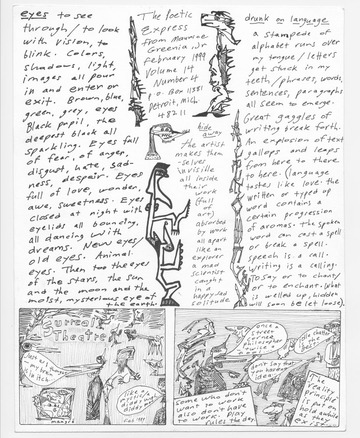 eyes to see
through/to look
with vision, to
blink. Colors,
shadows, light,
images all pour
in and enter or
exit. Brown, blue,
green, grey, eyes
Black pupil, the
deepest black all
sparkling. Eyes full
of fear, of anger,
disgust, hate, sad-
ness, despair. Eyes
full of love, wonder,
awe, sweetness. Eyes
closed at night with
eyelids all bouncing,
all dancing with
dreams. New eyes/
old eyes. Animal
eyes. Then too the eyes
of the stars, the sun
and the moon and the
moist, mysterious eye of
the earth.
The Poetic
Express
from Maurice
Greenia, Jr
February 1999
Volume 14
Number 4
P.O. Box 11381
Detroit, Mich
48211
hide
away
The artist
makes them
-selves
invisible
all inside
their
work
(full
they
are)
absorbed
by work
all apart
like an
explorer
a mad
scientist
caught
in a
happy, old
solitude
drunk on language
a stampede of
alphabet runs over
my tongue/letters
get stuck in my
teeth/phrases, words,
sentences, paragraphs
all seem to emerge.
Great gaggles of
writing break forth.
An explosion of text
gallops and leaps
from here to there
to here. (language
tastes like love the
written or typed up
word contains a
certain progression
of aromas. The spoken
word can cast a spell
or break a spell.
speech is a call-
writing is a calling
To say or to chant/
or to enchant. What
is welled up, hidden
will soon be let loose)
Surreal
Theatre
Feb 1999
once a
street
corner
philosopher
don't say that
you haven't
ideas
Some who don't
want to work
also don't have
to work. Play
rules the day
reality
principle